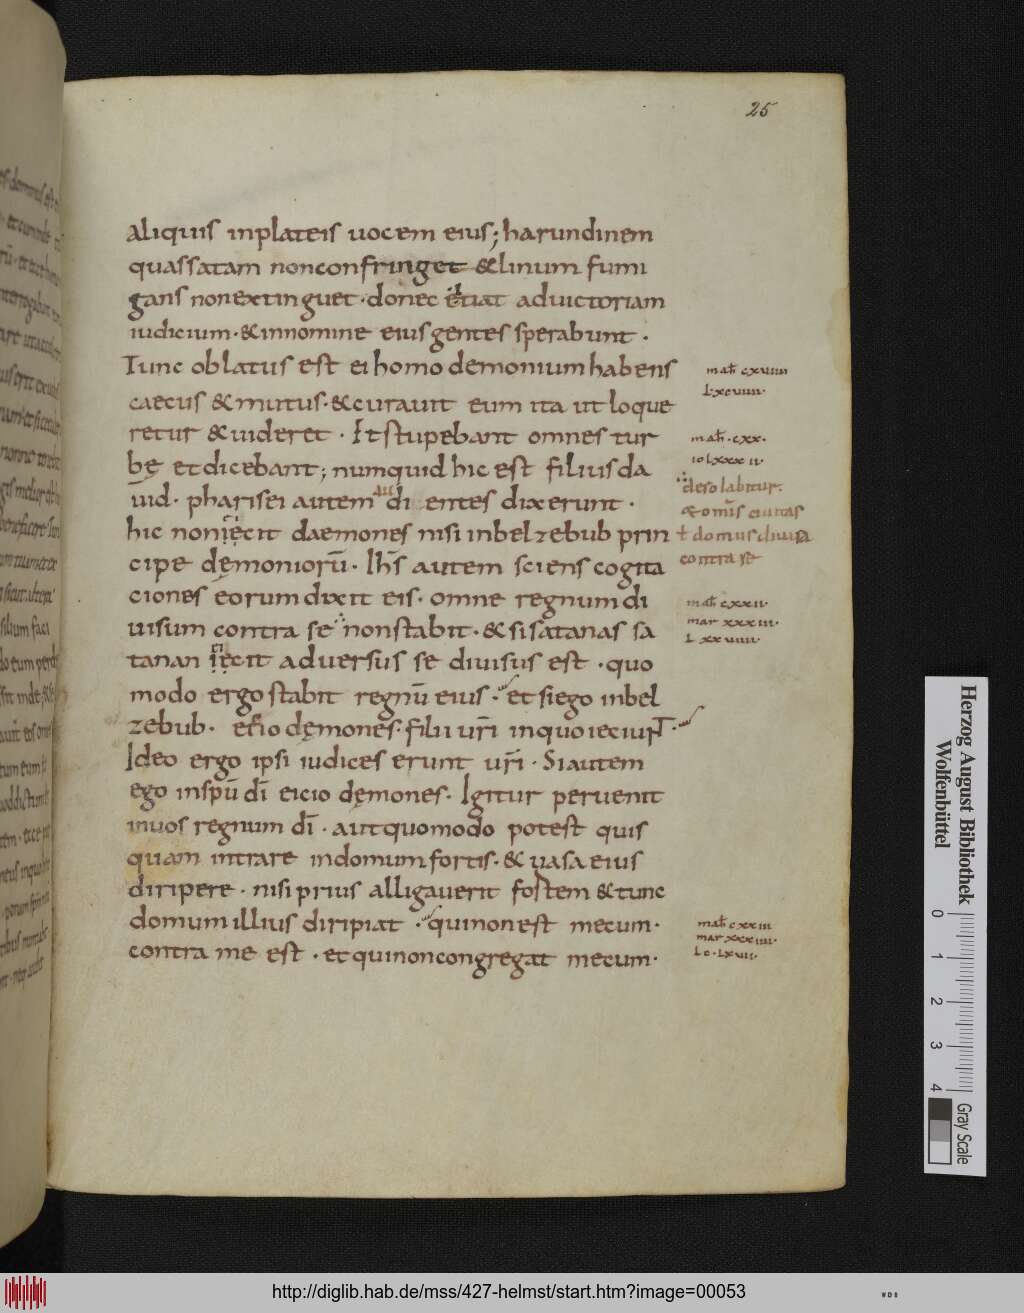 25
aliquis inplateis uocem eius; harundinem
quassatam nonconfringet &linum fumi
gans nonextinguet · donec aduictoriam
iudicium · &innomine eius gentes sperabunt ·
Tunc oblatus est ei homo demonium habens
caecus &mutus · &curauit eum ita ut loque
retur &uideret · Et stupebant omnes tur
bę et dicebant; numquid hic est filius da
uid · pharisei autem audientes dixerunt ·
hic non iecit daemones nisi inbelzebub prin
cipe dęmoniorū · Ihs̄ autem sciens cogita
ciones eorum dixit eis · omne regnum di
uisum contra se non stabit · &si satanas sa
tanan iecit aduersus se diuisus est · quo
modo ergo stabit regnū eius · et si ego inbel
zebub · dęmones · filii ur̄i inquo ieciunt ·
Ideo ergo ipsi iudices erunt ur̄i · Si autem
ego inspū dī eicio dęmones · Igitur peruenit
inuos regnum dī · aut quomodo potest quis
quam intrare indomum fortis · & uasa eius
diripere · nisi prius alligauerit fortem &tunc
domum illius diripiat · qui non est mecum ·
contra me est · et qui non congregat mecum ·
mat̄ cxuiiii
mat̄ · cxx ·
io lxxxii ·
desolabitur ·
&omīs ciuitas
ł domus diuisa
contra se
mat̄ cxxii ·
mar xxxiii ·
mat̄ cxxiii
mar xxxiiii ·
Herzog August Bibliothek
Wolfenbüttel
0 1 2 3 4
Gray Scale
http://diglib.hab.de/mss/427-helmst/start.htm?image=00053